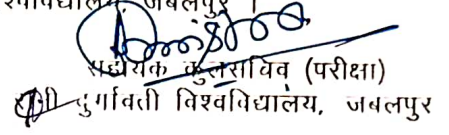 श्वविद्यालय, जबलपुर ।
सहायक कुलसचिव (परीक्षा)
दुर्गावती विश्वविद्यालय, जबलपुर